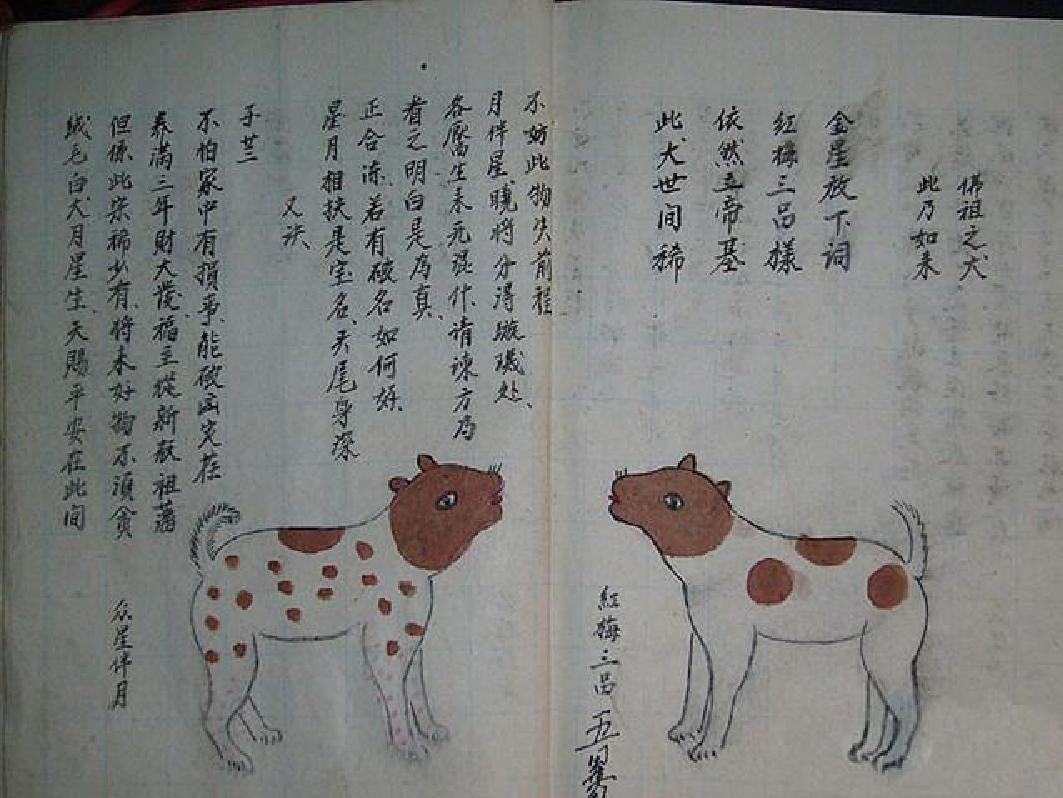 佛祖之犬
此乃如来
金星放下词
红梅三品樣
依然立帝基
此犬世间稀
紅梅三品
不妨此物失前程
月伴星曉將分得璇璣处、
各曆生来无混什、请谏方为
看之明白是为真、
正合涷、若有破名如何妍、
星月相扶是宝名、天尾身深
又诀、
手廿三
不怕家中有損事、能破凶灾在
养满三年财大發福主從新啟祖蕃
但係此柴稀少有、將来好物不須貪
絨毛白犬月星生、天賜平安在此间
众星伴月